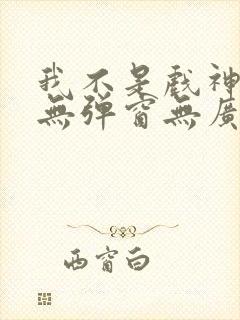 我不是戲神
無彈窗無廣
西窗白